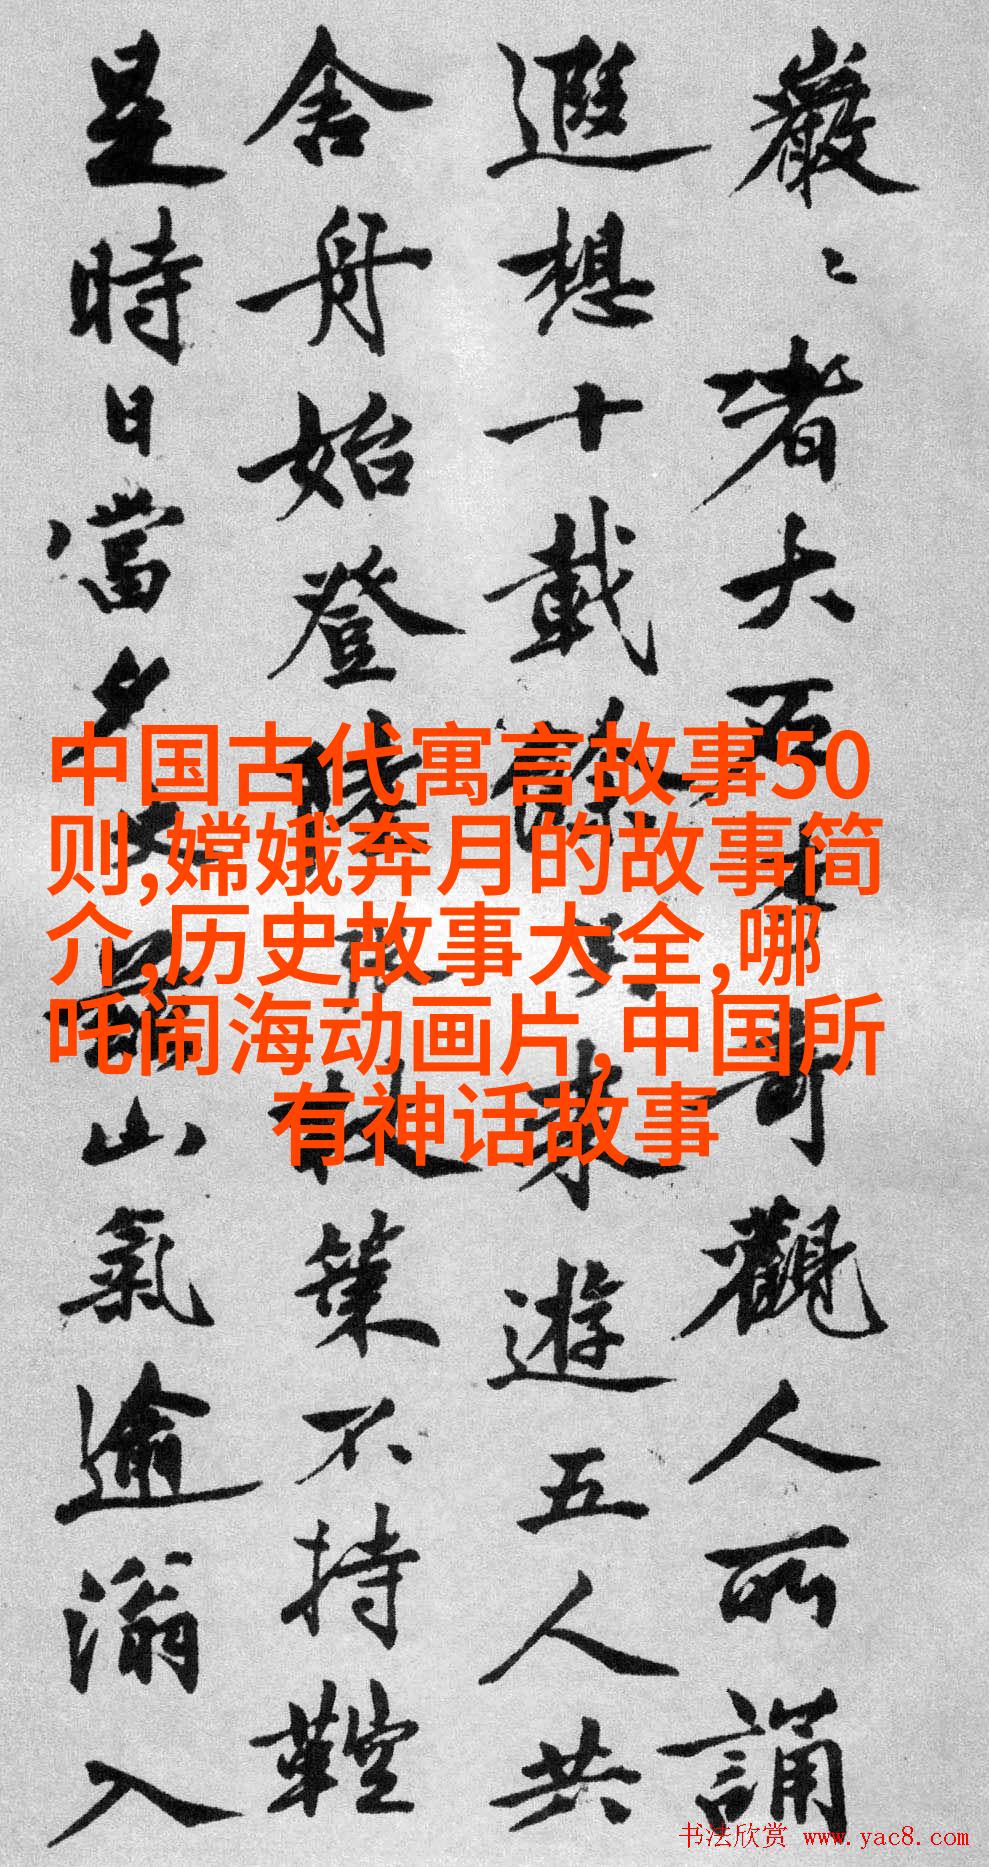 巖〻者大 觀人所誦
遐想十載 來遊五人共
舍舟始登陸 杖策不持鞚
是時日當夕 山氣逾滃入
中国古代寓言故事50
则,嫦娥奔月的故事简
介,历史故事大全,哪
吒闹海动画片,中国所
有神话故事
书法欣赏 www.yac8.com